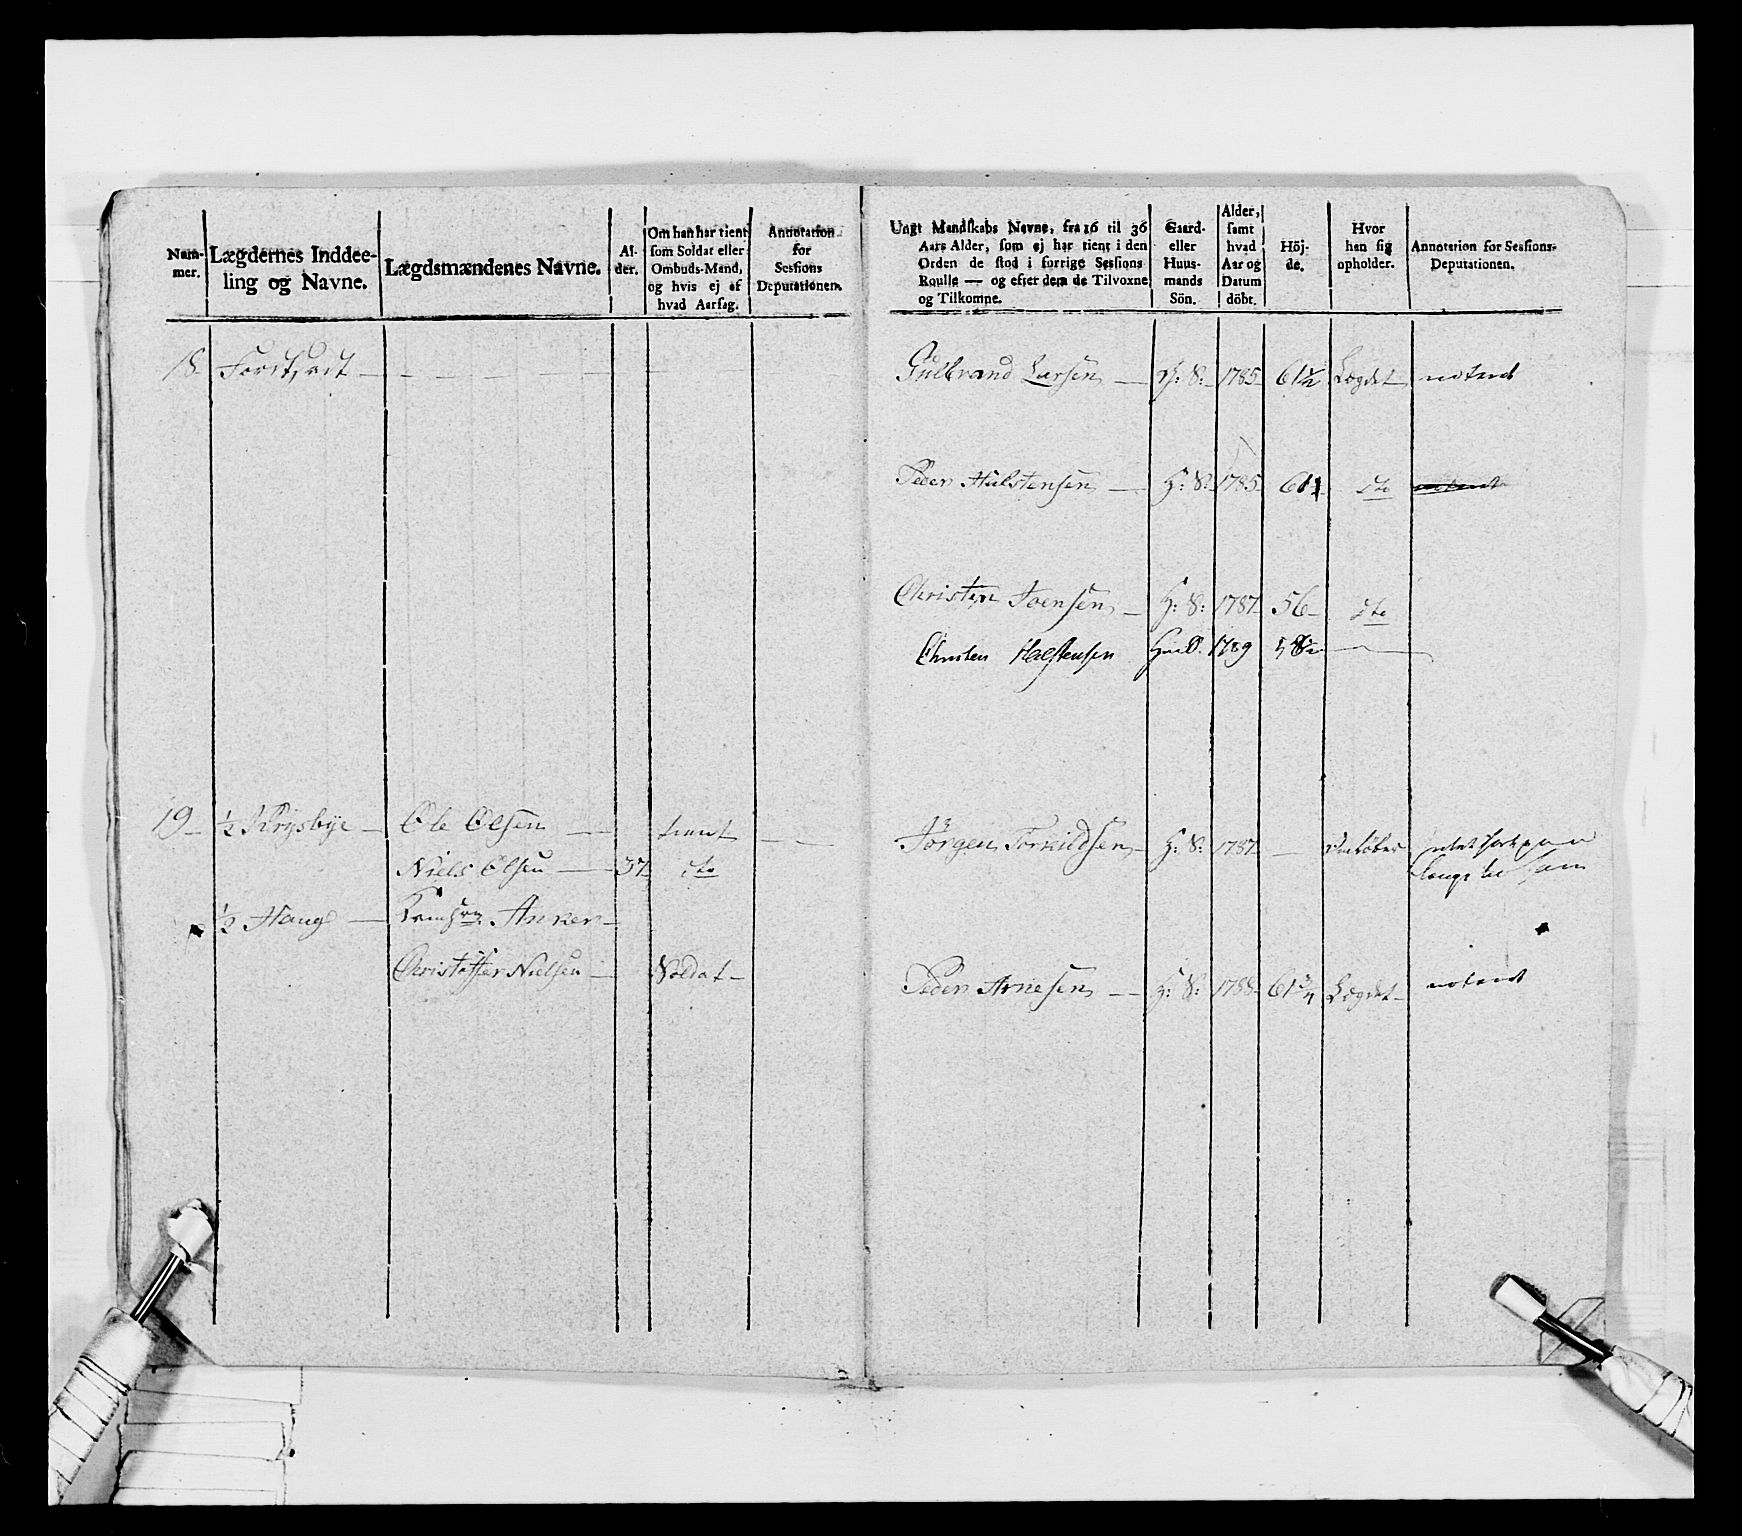 Num-
mer.
Lægdernes Inddee-
ling og Navne.
Lægdsmændenes Navne.
Al-
der.
Om han har tient
som Soldat eller
Ombuds-Mand,
og hvis ej af
hvad Aarsag.
Annotation
for
Sessions
Deputationen.
18. Fortsadt
19 ½ Krysbye Ole Olsen tient
Niels Olsen 37 dto
½ Haug Anker
Christoffer Nielsen Soldat
Ungt Mandskabs Navne, fra 16 til 36
Aars Alder, som ej har tient i den
Orden de stod i forrige Sessions
Roulle — og efter dem de Tilvoxne
og Tilkomne.
Gaard-
eller
Huus-
mands
Sön.
Alder,
samt
hvad
Aar og
Datum
döbt.
Höj-
de.
Hvor
han sig
opholder.
Annotation for Sessions-
Deputationen.
Gulbrand Larsen H: S: 1785 61½ Lægdet notert
Peder Halstensen H: S: 1785 61 dto
Christen Joensen H: S: 1787 56 dto
Christen Halstensen 1789
Jörgen Torkildsen H: S: 1787
Peder Arnesen H: S: 1788 61¾ Lægdet notert